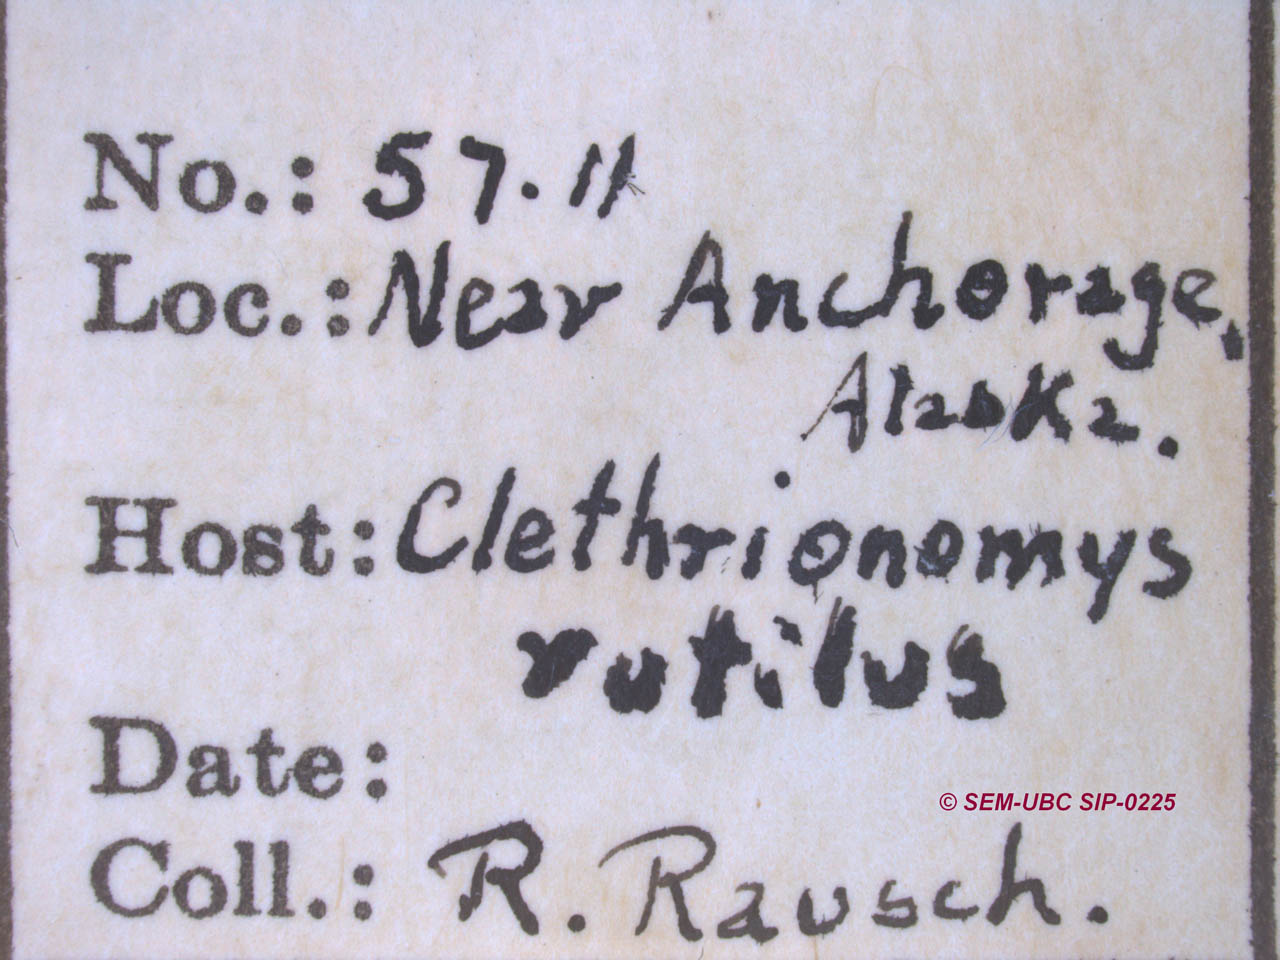 No.: 57.11
Loc.: Near Anchorage,
Alaska.
Host: Clethrionomys
rutilus
Date:
© SEM-UBC SIP-0225
Coll.: R. Rausch.